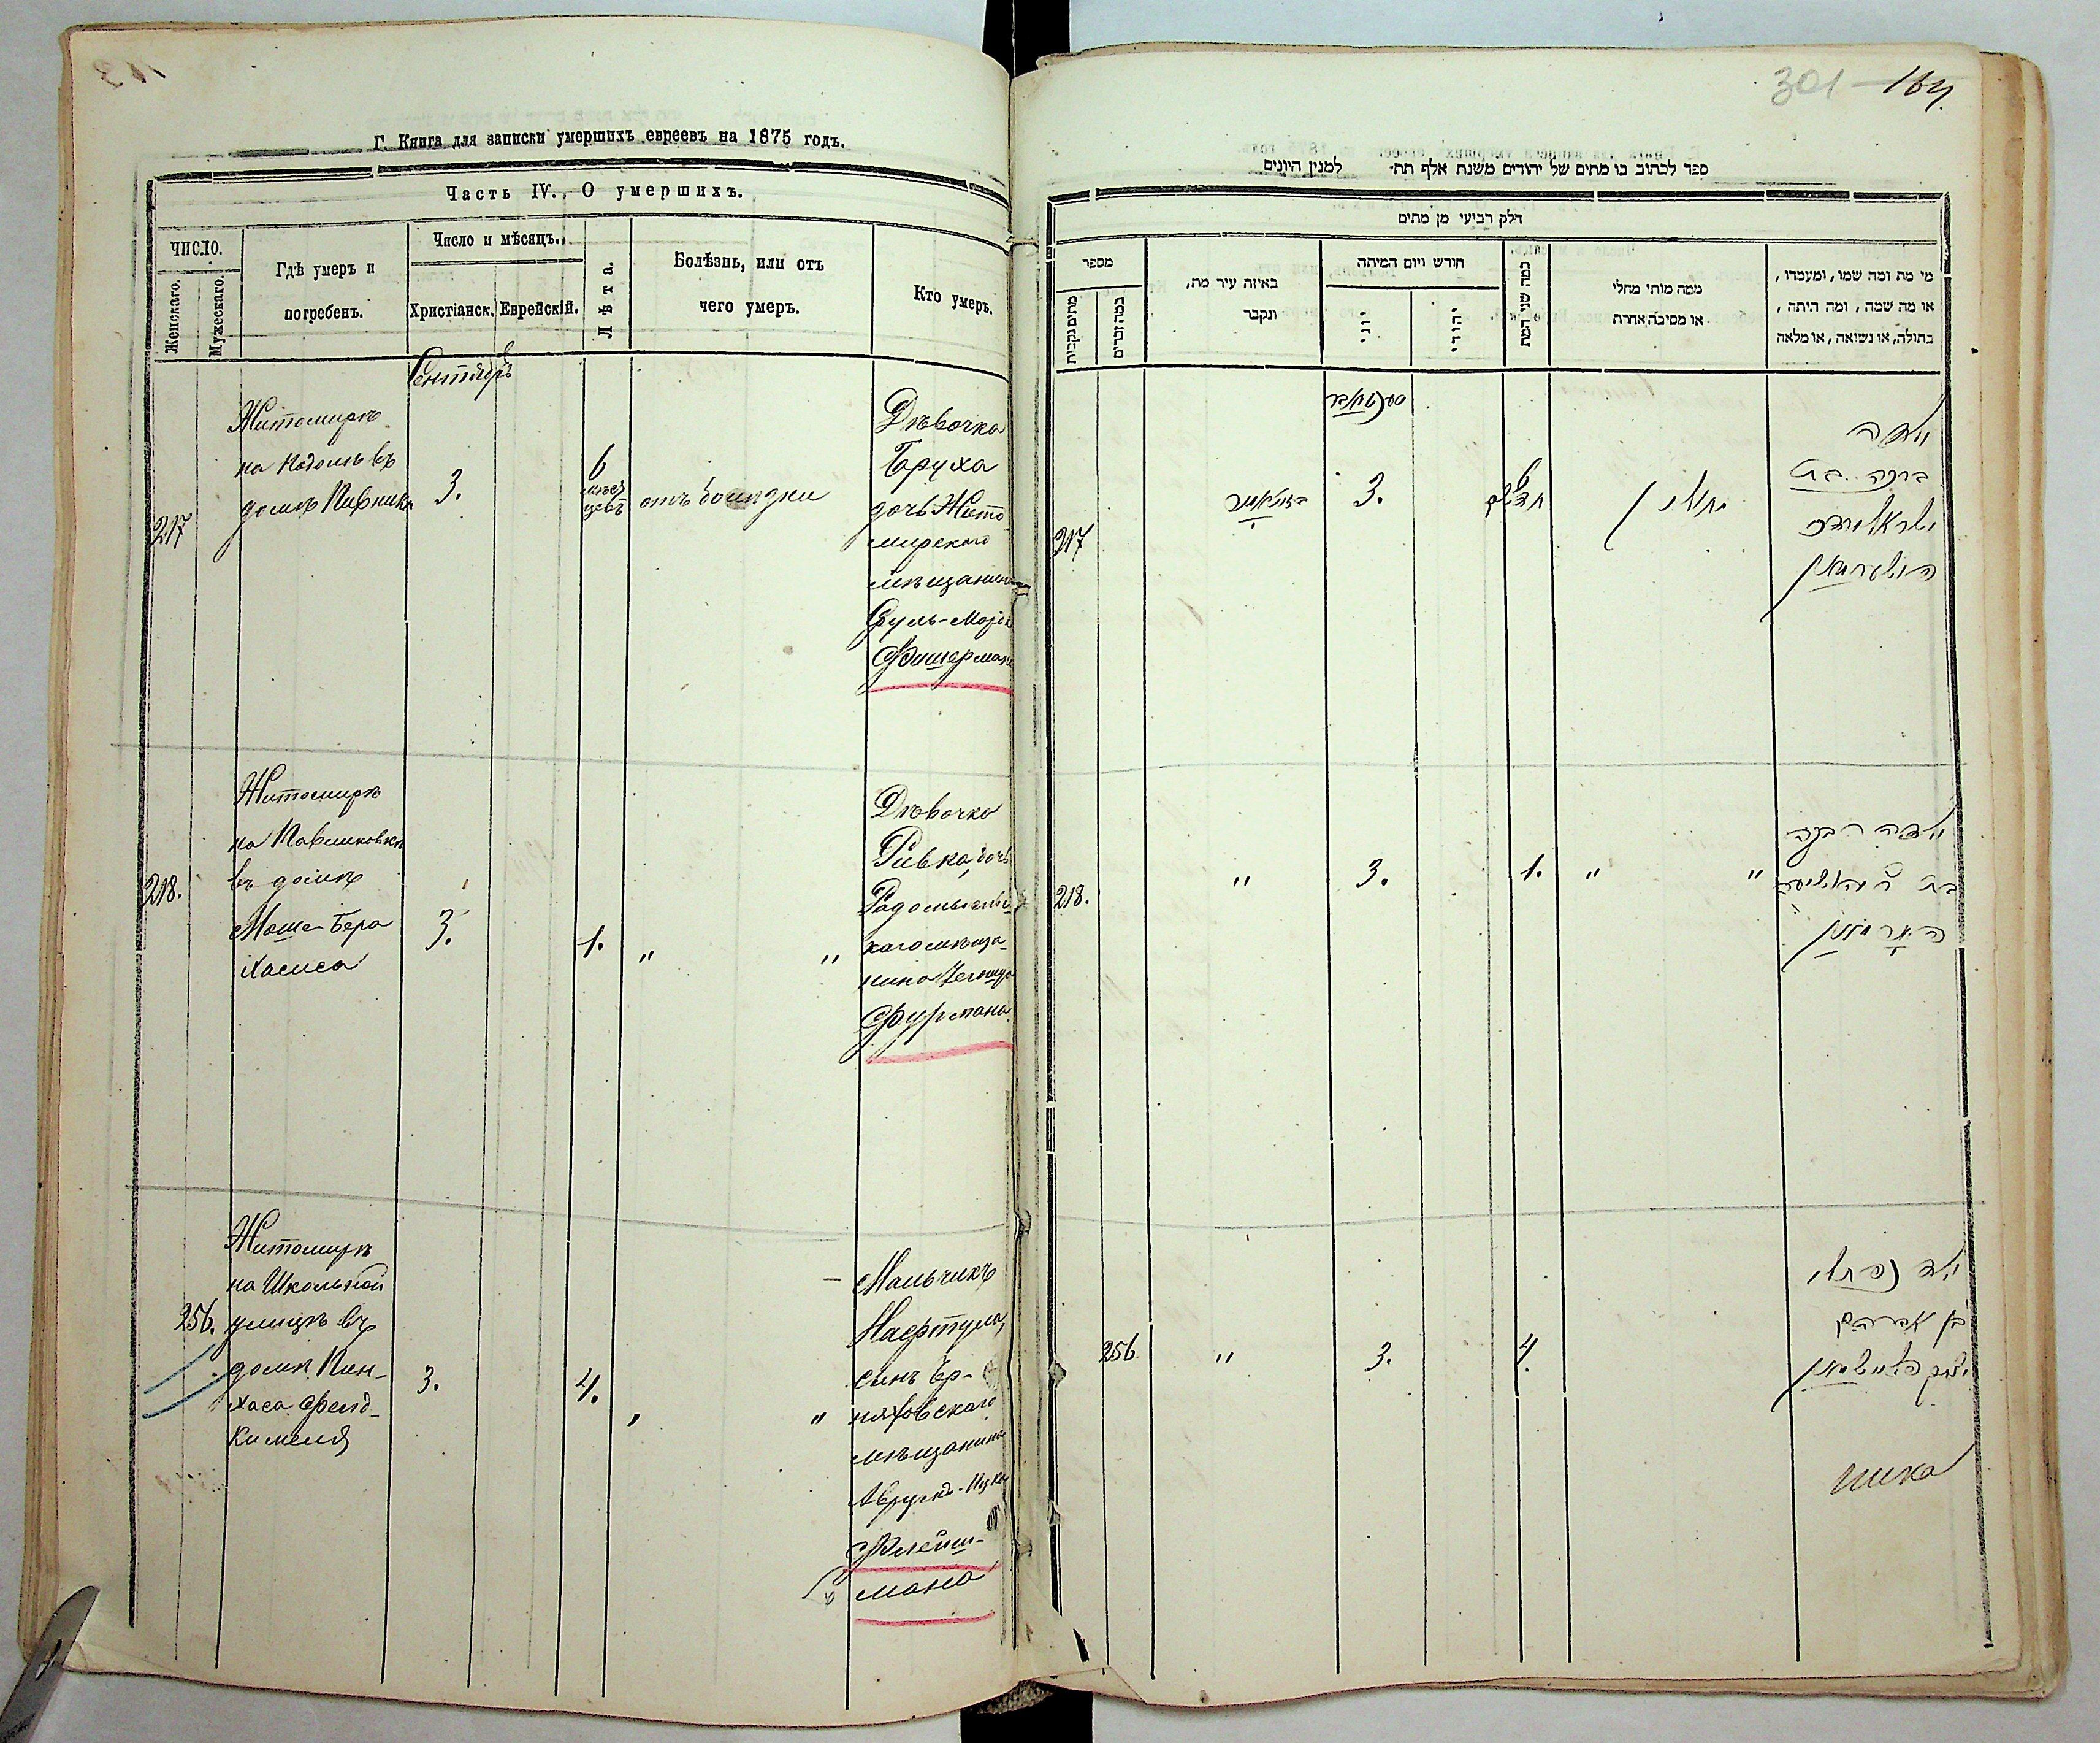 Г. Книга для записки умершихъ евреевъ на 1875 годъ.
Часть IV. О умершихъ.
ЧИСЛО.
Женскаго.
Мужескаго.
Гдѣ умеръ и
погребенъ.
Число и мѣсяцъ.
Христіанск.
Еврейскій.
Лѣта.
Болѣзнь, или отъ
чего умеръ.
Кто умеръ.
Сентябрь
217
Житомирѣ
на Подолѣ въ
домѣ Пивника
3.
6
мѣся
цевъ
отъ
Дѣвочка
Баруха
дочь Жито
мирского
мѣщанина
Фишермана
218.
Житомирѣ
на Павликовкѣ
въ домѣ
Моше Бера
Хасиса
3.
1.
" "
Дѣвочка
Ривка, дочь
каго мѣща-
нина
Фурмана
256.
Житомирѣ
на Школьной
улицѣ въ
домѣ Пин-
хаса Фельд-
Кимеля
3.
4.
" "
Мальчикъ
Нафтула,
сынъ Чер-
няховскаго
мѣщанина
Флейш-
мана
301 — 164.
ספר לכתוב בו מתים של יהודים משנת אלף תת׳ למנין היונים
חלק רביעי מן מתים
מספר
מתים נקבות
כמה זכרים
באיזה עיר מת,
ונקבר
חודש ויום המיתה
יוני
יהודי
כמה שני המת
ממה מותי מחלי
או מסיבה אחרת
מי מת ומה שמו, ומעמדו,
או מה שמה, ומה היתה,
בתולה, או נשואה, או מלאה
217
זיטאמיר
3.
6
חדשים
ילדה
ברכה בת
ישראל מרדכי
פישערמאן
218.
"
3.
1.
" "
ילדה רבקה
פורמאן
256.
"
3.
4.
ילד נפתלי
בן אברהם
יצחק פליישמאן